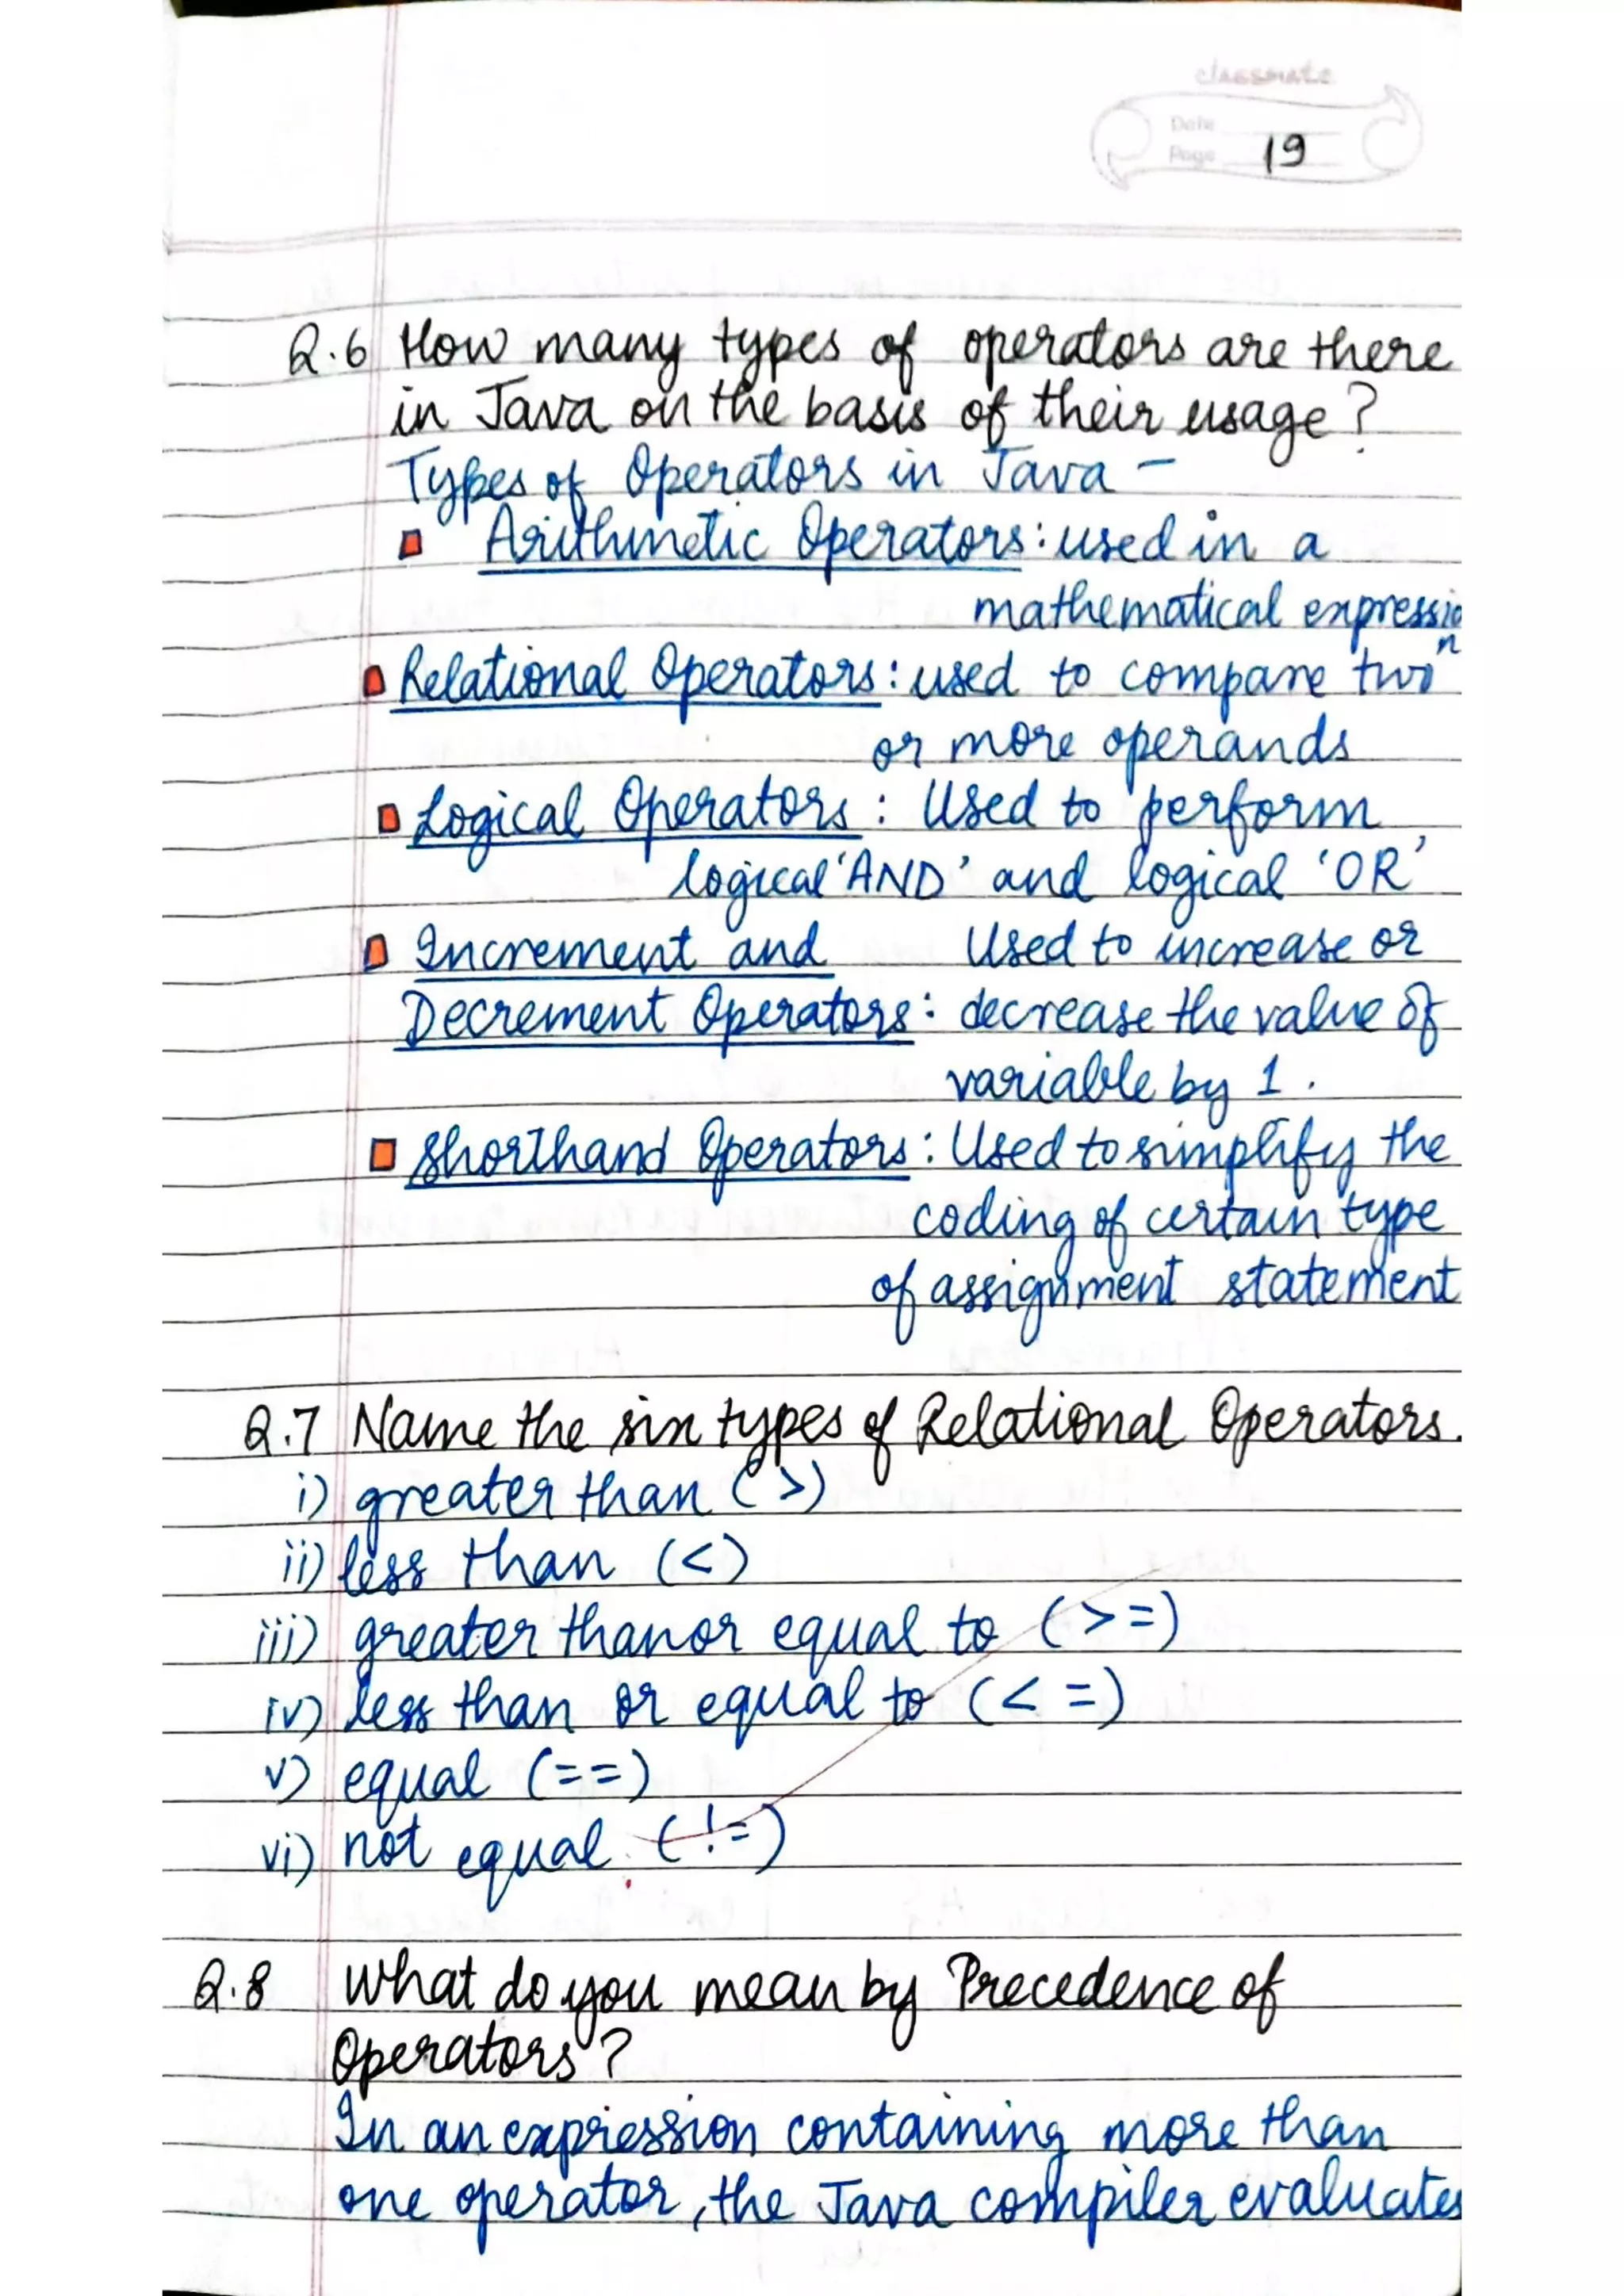 classmate
Date
Page 19
Q.6 How many types of operators are there
in Java on the basis of their usage?
Types of Operators in Java -
Arithmetic Operators: used in a
mathematical expression
Relational Operators: used to compare two
or more operands
Logical Operators: Used to perform
logical 'AND' and logical 'OR'
Increment and Used to increase or
Decrement Operators: decrease the value of
variable by 1.
Shorthand Operators: Used to simplify the
coding of certain type
of assignment statement
Q.7 Name the six types of Relational Operators.
i) greater than (>)
ii) less than (<)
iii) greater than or equal to (>=)
iv) less than or equal to (<=)
v) equal (==)
vi) not equal (!=)
Q.8 What do you mean by Precedence of
Operators?
In an expression containing more than
one operator, the Java compiler evaluates